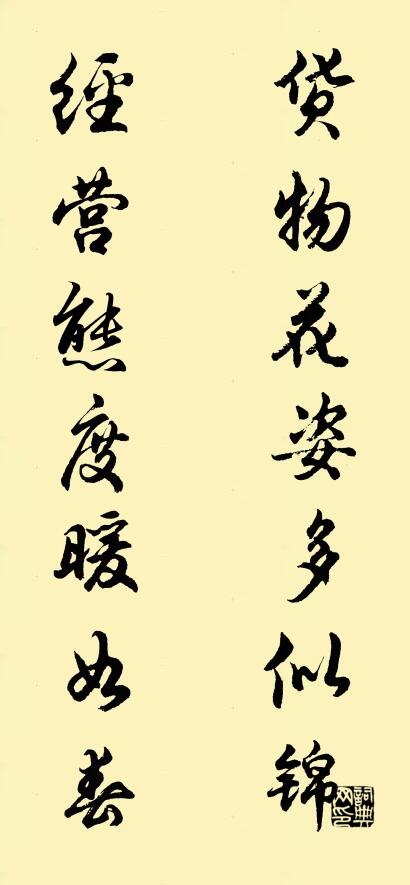 货物花姿多似锦
经营态度暖如春
词典网印